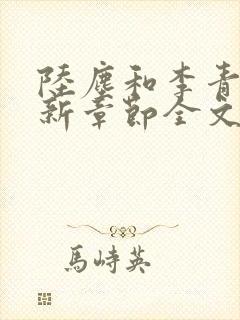 陸塵和李青
新章節全文
馬峙英